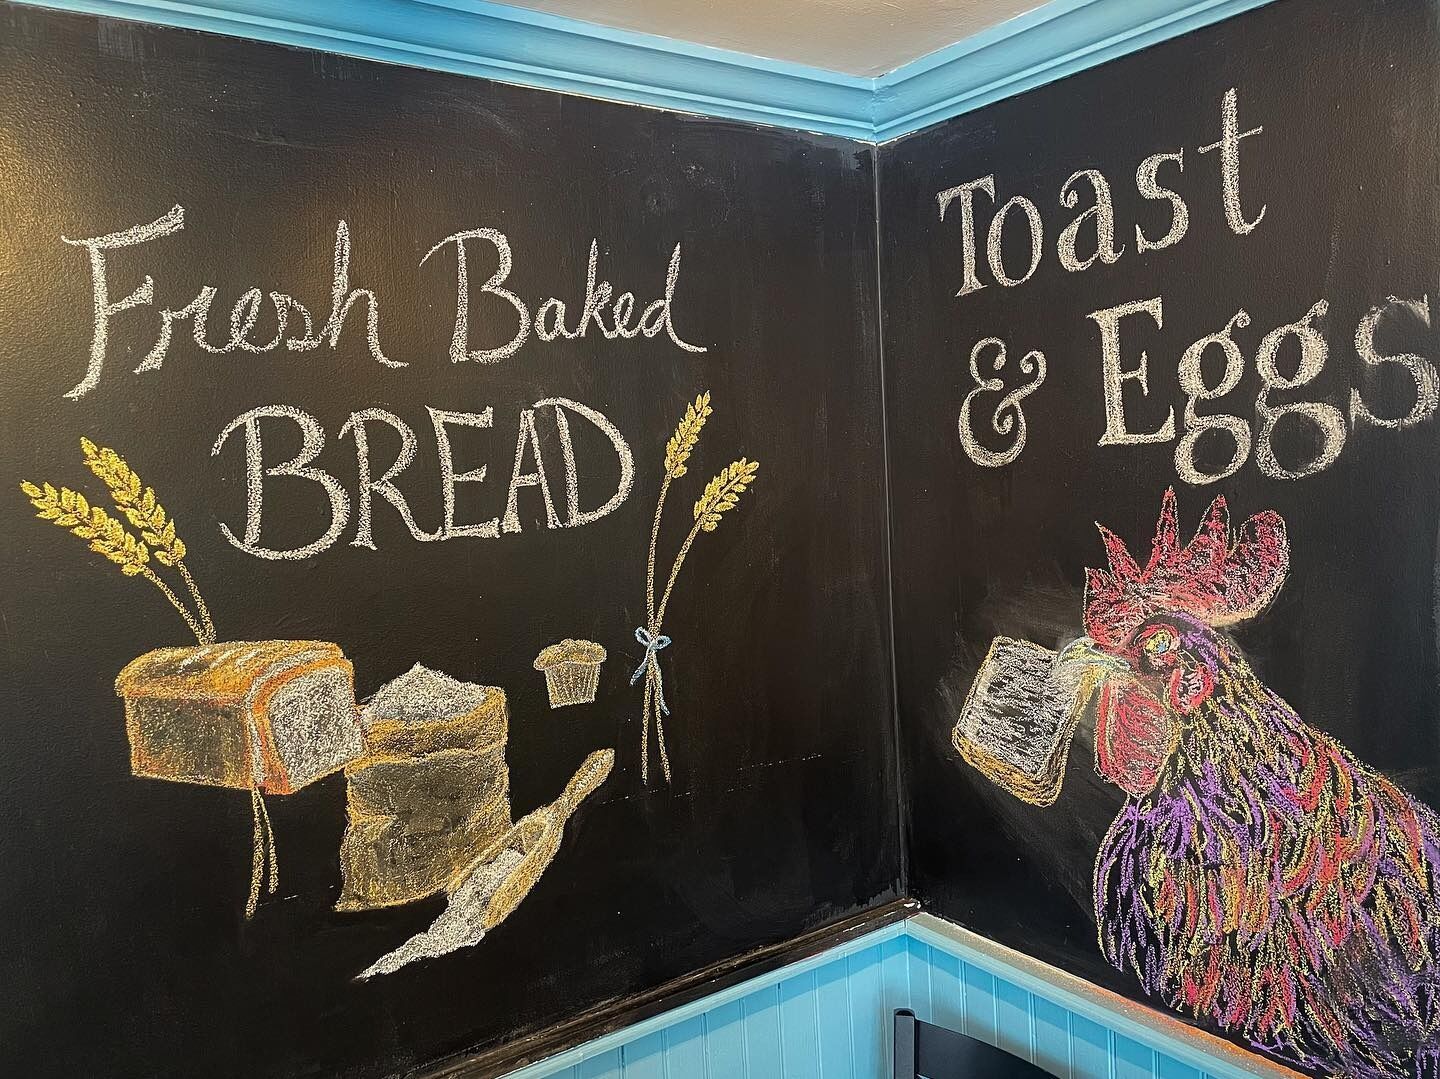 Fresh Baked
BREAD
Toast
& Eggs